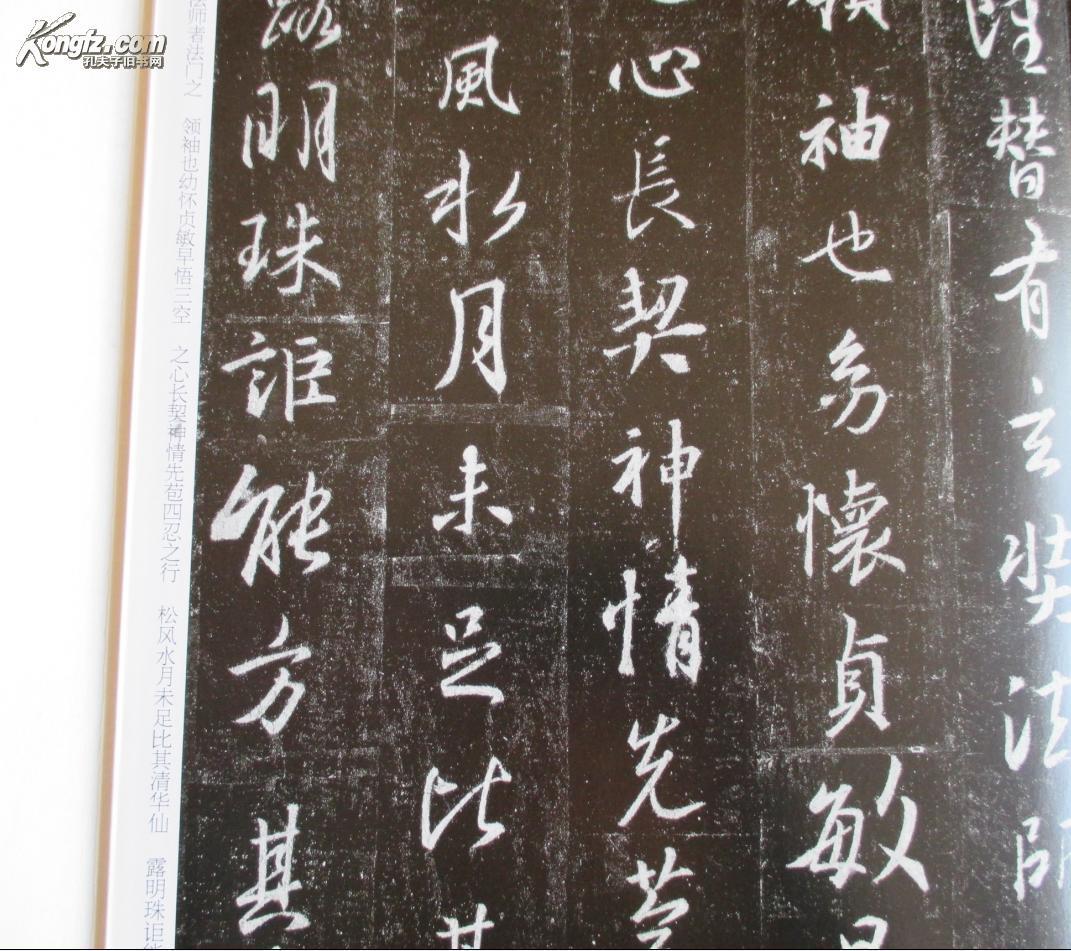 隆替有玄奘法師
袖也㓜懷貞敏
心長契神情先苞
風水月未足比其
露明珠詎能方其
法师者法门之 领袖也幼怀贞敏早悟三空 之心长契神情先苞四忍之行 松风水月未足比其清华仙 露明珠讵能
Kongfz.com
孔夫子旧书网